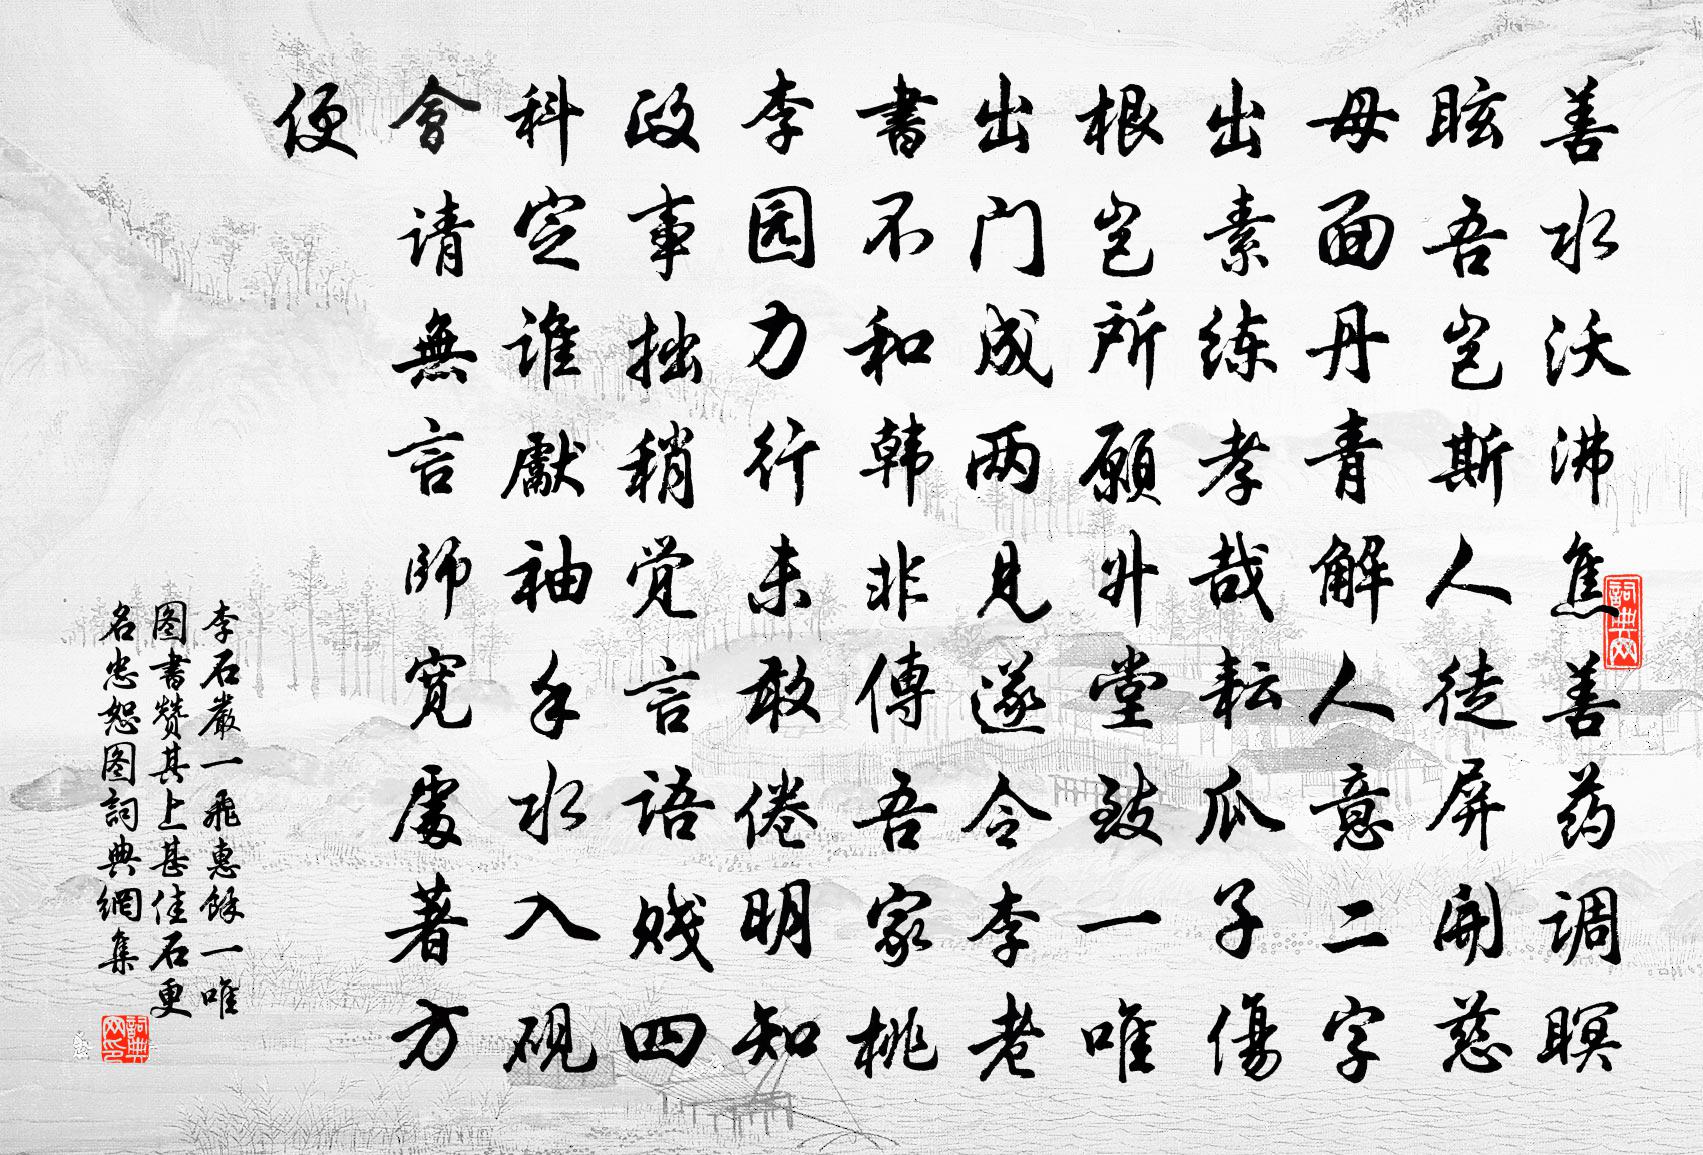 善水沃沸焦善药调瞑
眩吾岂斯人徒屏开慈
母面丹青解人意二字
出素练孝哉耘瓜子傷
根岂所願升堂致一唯
出门成两见遂令李老
書不和韩非傳吾家桃
李园力行未敢倦明知
政事拙稍觉言语贱四
科定谁獻袖手水入砚
會请無言師宽處著方
便
李石巖一飛惠餘一唯
图書赞其上甚佳石更
名忠恕图詞典網集
詞典网
詞典网印